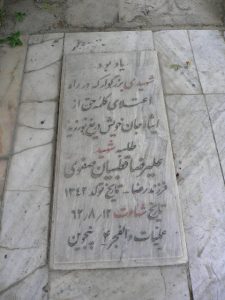 یادبود
شهیدی بزرگوار که در راه
اعتلای کلمه حق از
ایثار جان خویش دریغ نورزید
طلبه شهید
علیرضا قطبیان صفوی
فرزند رضا - تاریخ تولد ۱۳۴۲
تاریخ شهادت ۶۲/۸/۱۲
عملیات والفجر ۴ پنجوین